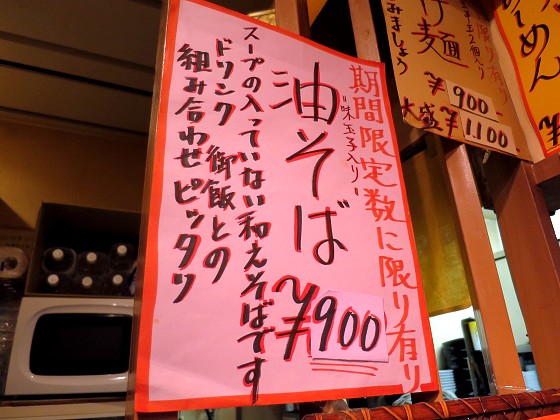 期間限定数に限り有り
"味玉子入り"
油そば
¥900
スープの入っていない和えそばです
ドリンク 御飯との
組み合わせピッタリ
限り有り
玉子2個入り
け麺
みましょう
¥900
大盛¥1,100
らーめん